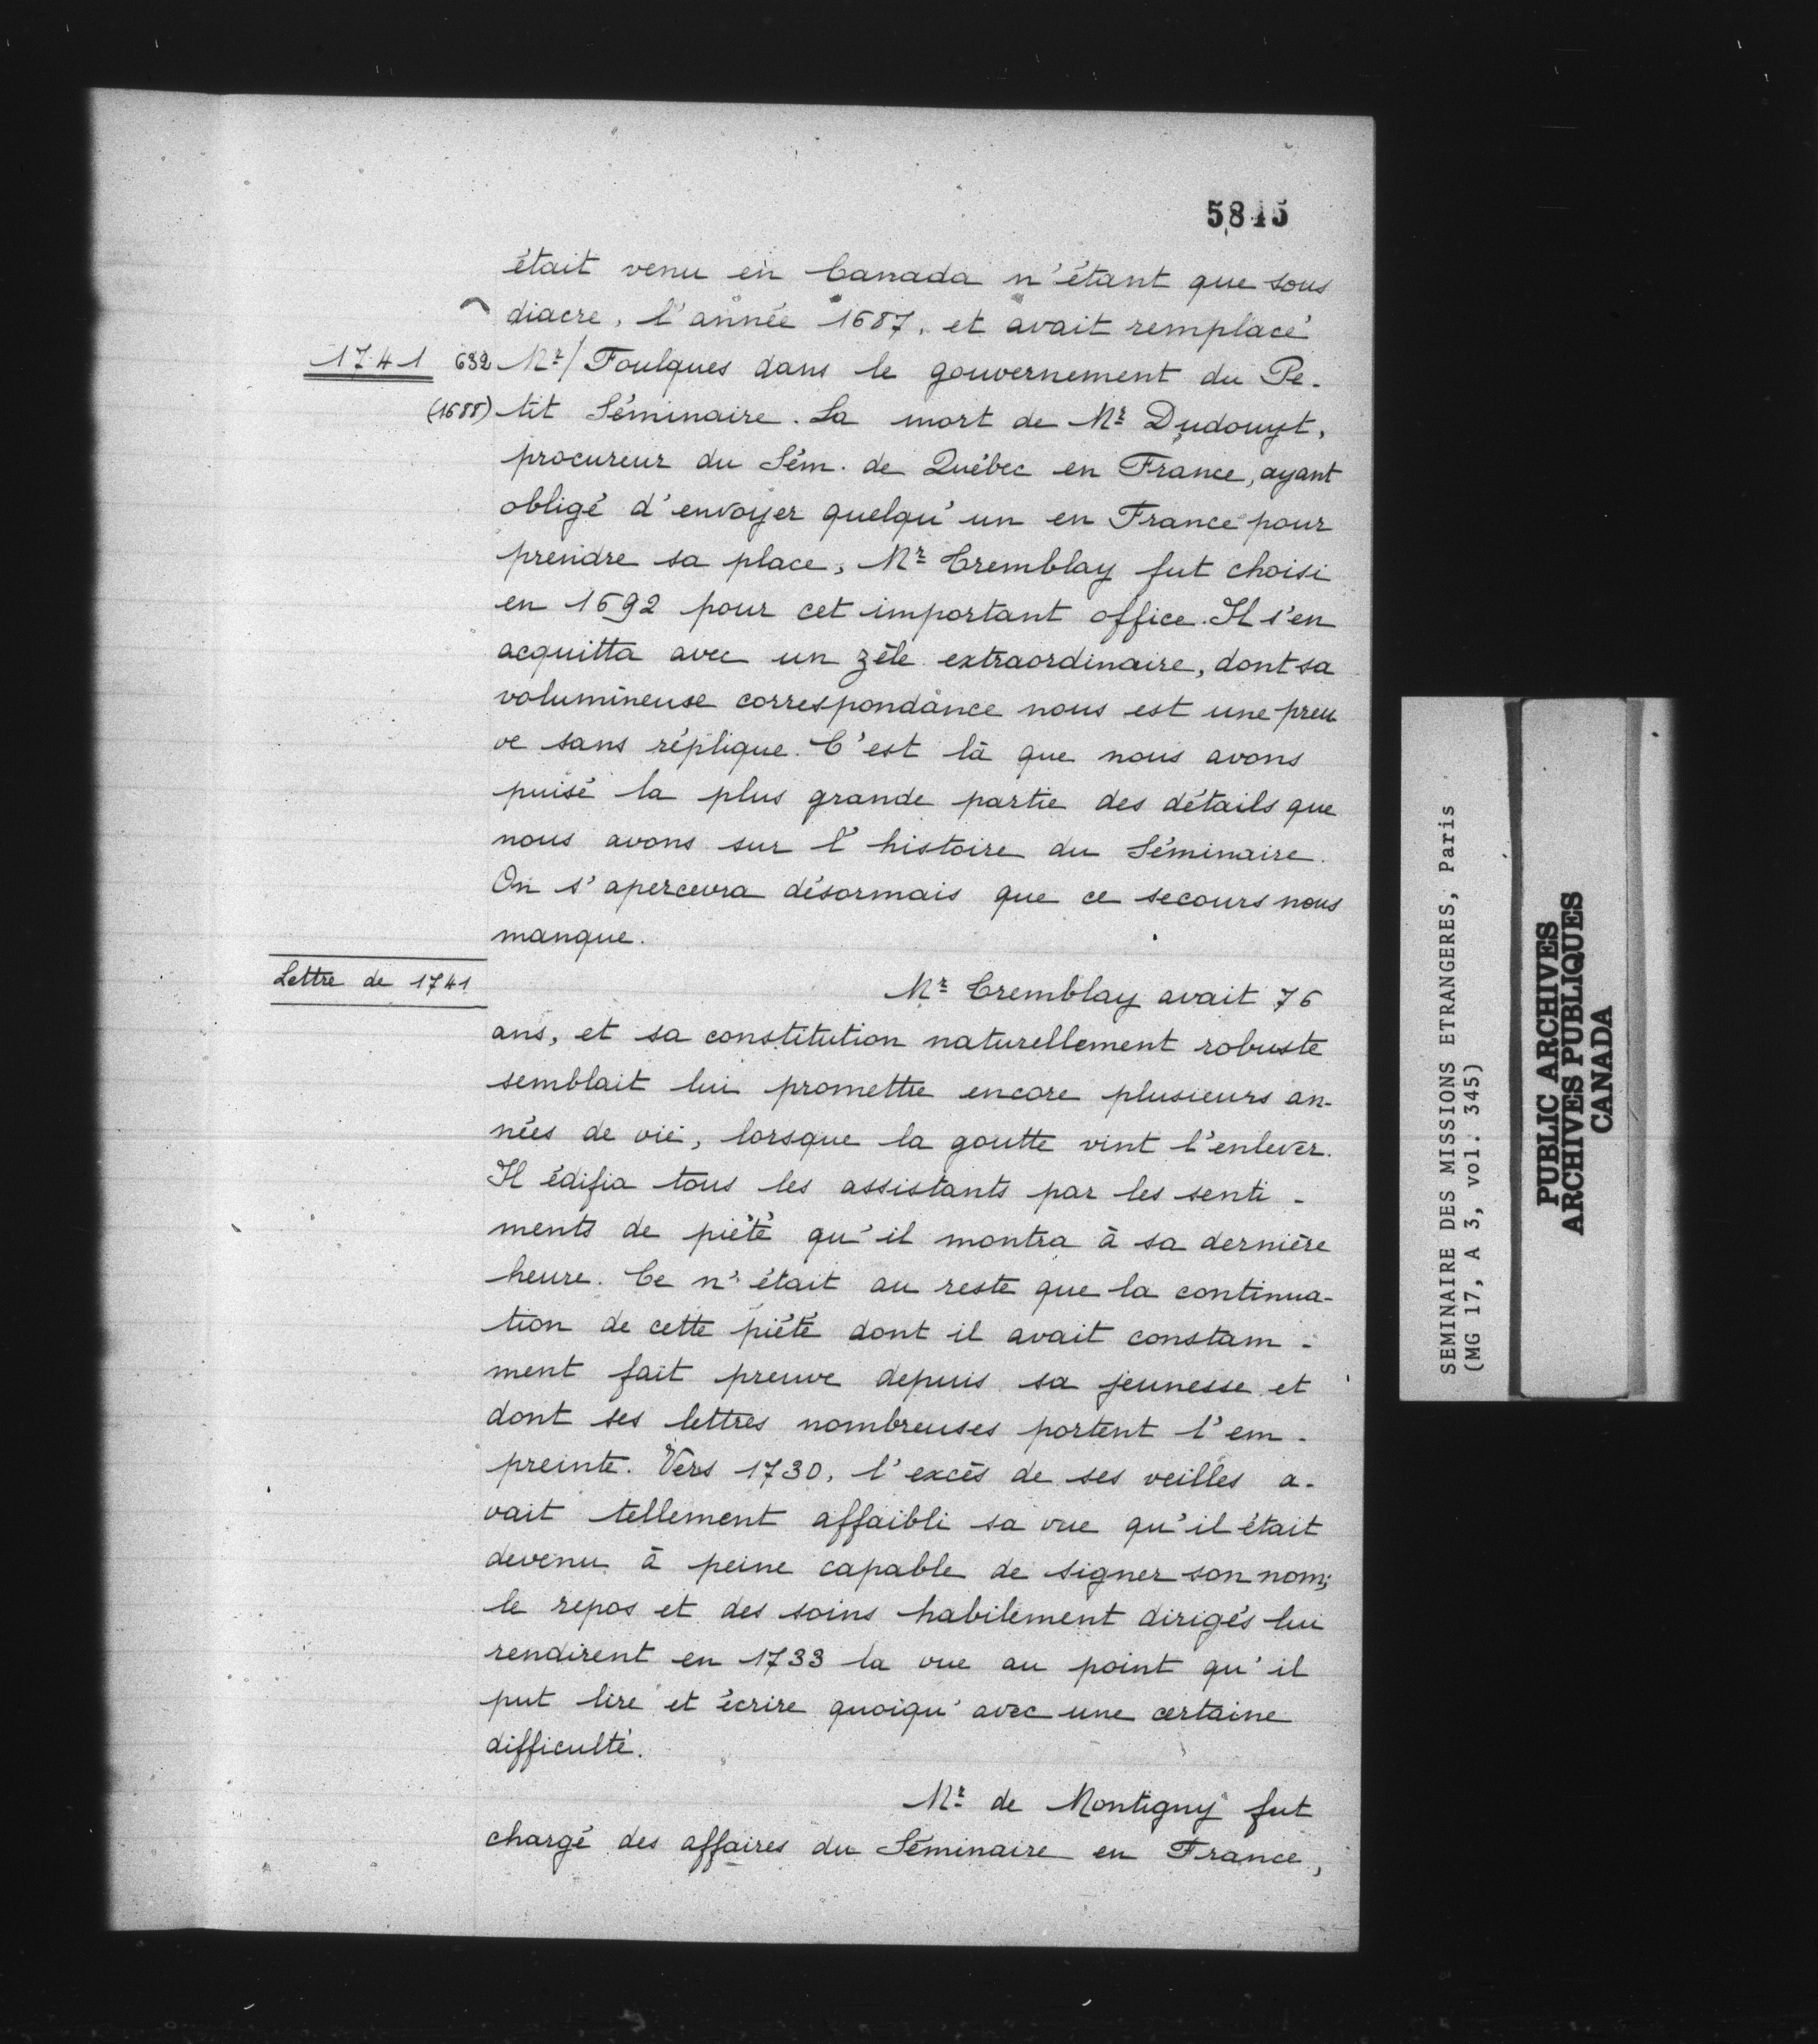 5815
était venu en Canada n'étant que sous
diacre, l'année 1687, et avait remplacé
1741 632 Mr/ Foulques dans le gouvernement du Pe-
(1688) tit Séminaire. La mort de Mr Dudouyt,
procureur du Sém. de Québec en France, ayant
obligé d'envoyer quelqu'un en France pour
prendre sa place, Mr Tremblay fut choisi
en 1692 pour cet important office. Il s'en
acquitta avec un zèle extraordinaire, dont sa
volumineuse correspondance nous est une preu
ve sans réplique. C'est là que nous avons
puisé la plus grande partie des détails que
nous avons sur l'histoire du Séminaire.
On s'apercevra désormais que ce secours nous
manque.
Lettre de 1741
Mr Tremblay avait 76
ans, et sa constitution naturellement robuste
semblait lui promettre encore plusieurs an-
nées de vie, lorsque la goutte vint l'enlever.
Il édifia tous les assistants par les senti-
ments de piété qu'il montra à sa dernière
heure. Ce n'était au reste que la continua-
tion de cette piété dont il avait constam-
ment fait preuve depuis sa jeunesse et
dont ses lettres nombreuses portent l'em-
preinte. Vers 1730, l'excès de ses veilles a-
vait tellement affaibli sa vue qu'il était
devenu à peine capable de signer son nom;
le repos et des soins habilement dirigés lui
rendirent en 1733 la vue au point qu'il
put lire et écrire quoiqu'avec une certaine
difficulté.
Mr de Montigny fut
chargé des affaires du Séminaire en France,
SEMINAIRE DES MISSIONS ETRANGERES, Paris
(MG 17, A 3, vol. 345)
PUBLIC ARCHIVES
ARCHIVES PUBLIQUES
CANADA